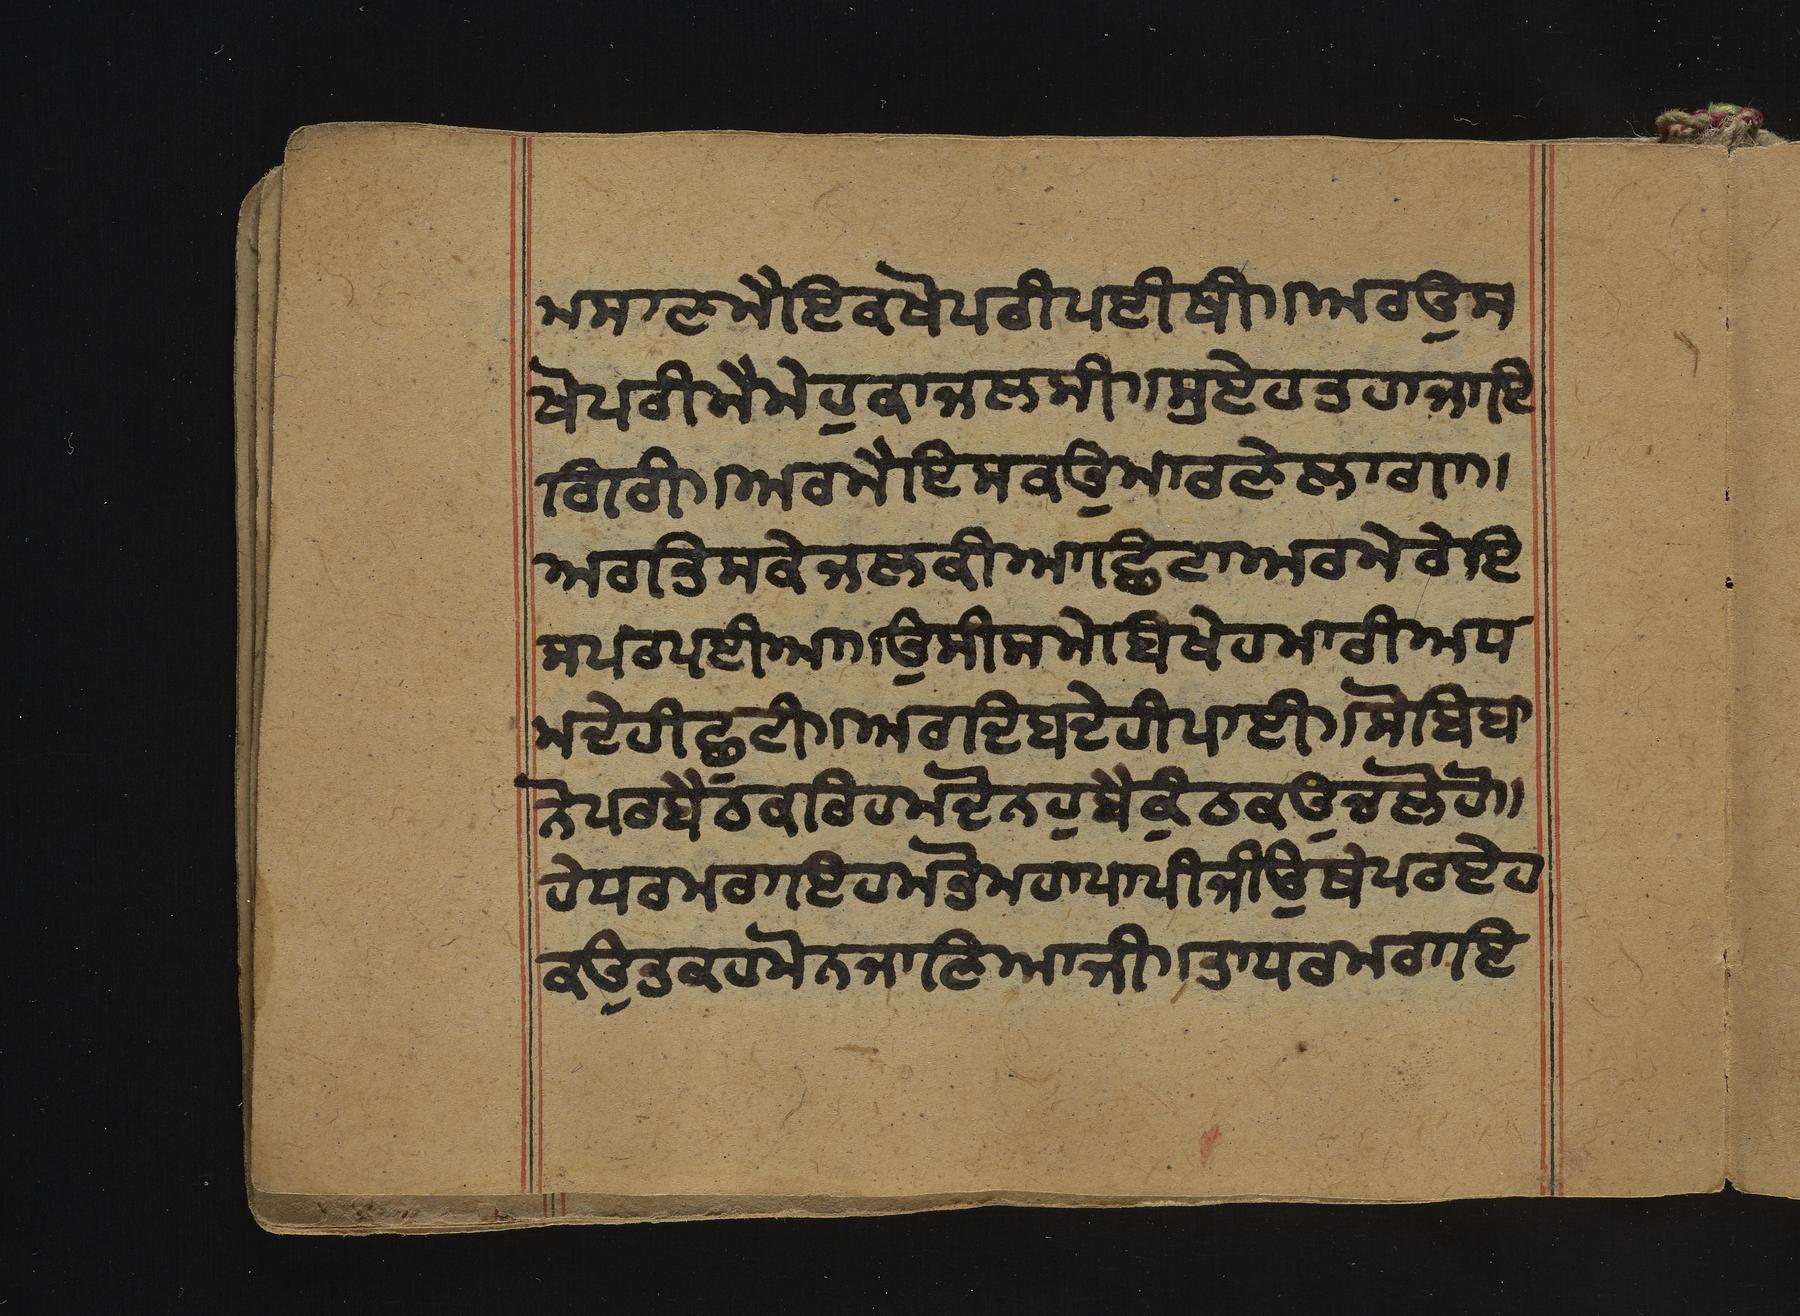 ਮਸਾਣਮੈਇਕਖੋਪਰੀਪਈਥੀ॥ਅਰਉਸ
ਖੋਪਰੀਮੈਮੇਹੁਕਾਜਲਸੀ॥ਸੁਏਹਤਹਾਜਾਇ
ਗਿਰੀ॥ਅਰਮੈਇਸਕਉਮਾਰਣੇਲਾਗਾ॥
ਅਰਤਿਸਕੇਜਲਕੀਆਛਿਟਾਅਰਮੇਰੇਇ
ਸਪਰਪਈਆ॥ਉਸੀਸਮੇਬਿਖੇਹਮਾਰੀਅਧ
ਮਦੇਹੀਛੁਟੀ॥ਅਰਦਿਬਦੇਹੀਪਾਈ॥ਸੋਬਿਬਾ
ਨੋਪਰਬੈਠਕਰਿਹਮਦੋਨਹੁਬੈਕੁੰਠਕਉਚਲੇਹੋ॥
ਹੇਧਰਮਰਾਇਹਮਤੋਮਹਾਪਾਪੀਜੀਉਥੇਪਰਏਹ
ਕਉਤਕਹਮੋਨਜਾਣਿਆਜੀ॥ਤਾਧਰਮਰਾਇ